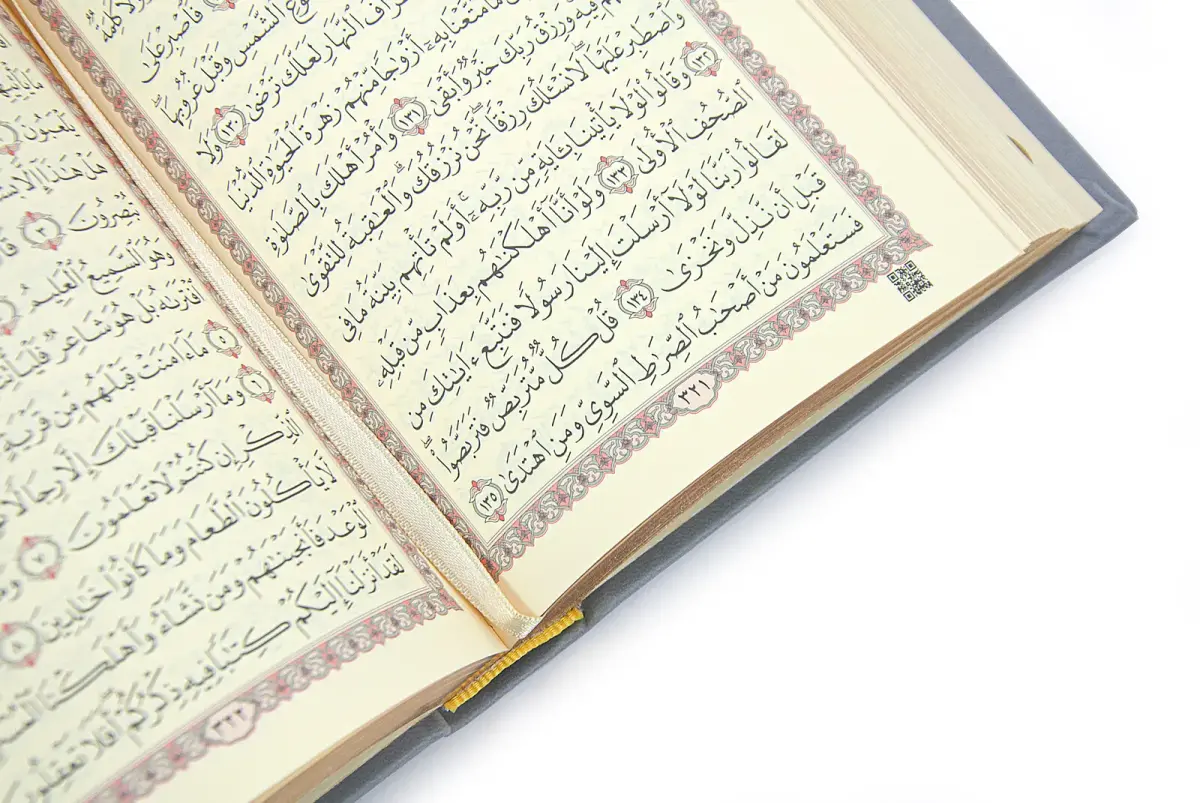 كَلِمَةٌ
فَٱصْبِرْ عَلَىٰ
طُلُوعِ ٱلشَّمْسِ وَقَبْلَ غُرُوبِهَا
ٱلنَّهَارِ لَعَلَّكَ تَرْضَىٰ ١٣٠ وَلَا
مَا مَتَّعْنَا بِهِۦٓ أَزْوَٰجًا مِّنْهُمْ زَهْرَةَ ٱلْحَيَوٰةِ ٱلدُّنْيَا
فِيهِ وَرِزْقُ رَبِّكَ خَيْرٌ وَأَبْقَىٰ ١٣١ وَأْمُرْ أَهْلَكَ بِٱلصَّلَوٰةِ
وَٱصْطَبِرْ عَلَيْهَا ۖ لَا نَسْـَٔلُكَ رِزْقًا ۖ نَّحْنُ نَرْزُقُكَ ۗ وَٱلْعَٰقِبَةُ لِلتَّقْوَىٰ
١٣٢ وَقَالُوا۟ لَوْلَا يَأْتِينَا بِـَٔايَةٍ مِّن رَّبِّهِۦٓ ۚ أَوَلَمْ تَأْتِهِم بَيِّنَةُ مَا فِى
ٱلصُّحُفِ ٱلْأُولَىٰ ١٣٣ وَلَوْ أَنَّآ أَهْلَكْنَٰهُم بِعَذَابٍ مِّن قَبْلِهِۦ
لَقَالُوا۟ رَبَّنَا لَوْلَآ أَرْسَلْتَ إِلَيْنَا رَسُولًا فَنَتَّبِعَ ءَايَٰتِكَ مِن
قَبْلِ أَن نَّذِلَّ وَنَخْزَىٰ ١٣٤ قُلْ كُلٌّ مُّتَرَبِّصٌ فَتَرَبَّصُوا۟ ۖ
فَسَتَعْلَمُونَ مَنْ أَصْحَٰبُ ٱلصِّرَٰطِ ٱلسَّوِىِّ وَمَنِ ٱهْتَدَىٰ ١٣٥
٣٢١
مَا يَأْتِيهِم
يَلْعَبُونَ
هَلْ هَٰذَآ إِلَّا
تُبْصِرُونَ ٣
وَهُوَ ٱلسَّمِيعُ ٱلْعَلِيمُ
ٱفْتَرَىٰهُ بَلْ هُوَ شَاعِرٌ
٥ مَآ ءَامَنَتْ قَبْلَهُم مِّن قَرْيَةٍ
٦ وَمَآ أَرْسَلْنَا قَبْلَكَ إِلَّا رِجَالًا
ٱلذِّكْرِ إِن كُنتُمْ لَا تَعْلَمُونَ ٧
لَّا يَأْكُلُونَ ٱلطَّعَامَ وَمَا كَانُوا۟ خَٰلِدِينَ ٨
ٱلْوَعْدَ فَأَنجَيْنَٰهُمْ وَمَن نَّشَآءُ وَأَهْلَكْنَا
لَقَدْ أَنزَلْنَآ إِلَيْكُمْ كِتَٰبًا فِيهِ ذِكْرُكُمْ ۖ أَفَلَا تَعْقِلُونَ
٣٢٢